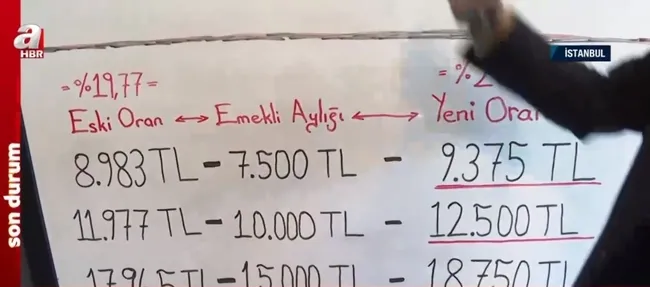 a
HBR
İSTANBUL
son durum
=%19,77= =%2
Eski Oran ↔ Emekli Aylığı ↔ Yeni Oran
8.983 TL - 7.500 TL - 9.375 TL
11.977 TL - 10.000 TL - 12.500 TL
17.965 TL - 15.000 TL - 18.750 TL